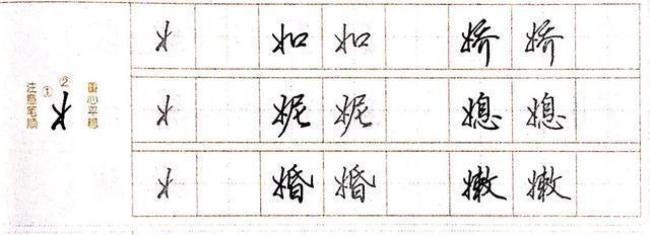 注意笔顺
① ②
女
重心平稳
女 如 如 娇 娇
女 妮 妮 媳 媳
女 婚 婚 嫩 嫩